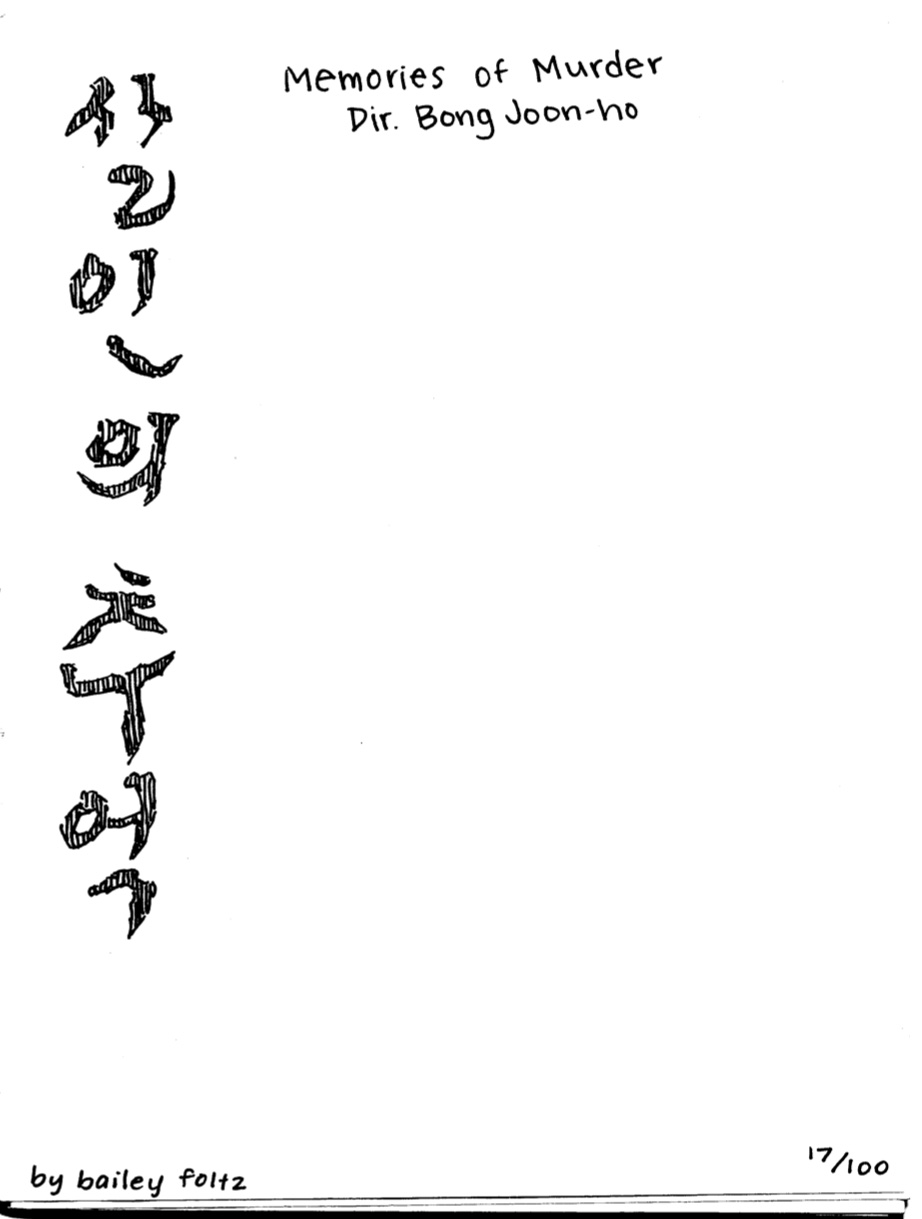 살인의 추억
Memories of Murder
Dir. Bong Joon-ho
by bailey foltz
17/100